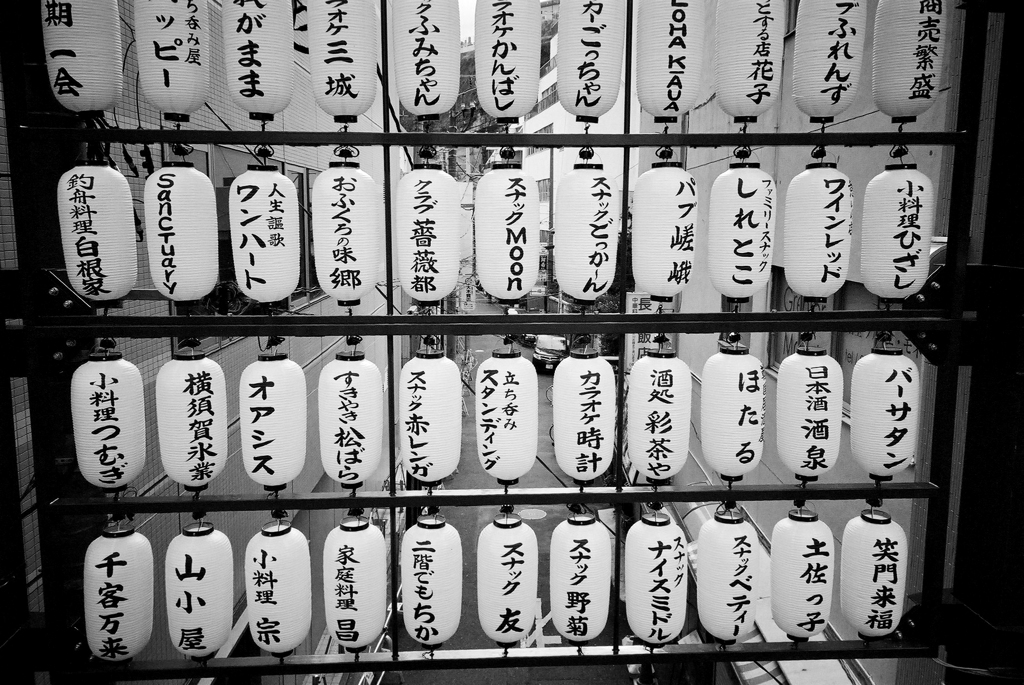 期一会
呑み屋 ハッピー
我がまま
カラオケ 三城
ふみちゃん
カラオケ かんばし
ごっちゃん
LOHA KAUA
とする店 花子
ふれんず
商売繁盛
釣舟料理 白根家
Sanctuary
人生謳歌 ワンハート
おふくろの味 郷
クラブ 薔薇都
スナック Moon
スナック どっかーん
パブ 嵯峨
ファミリースナック しれとこ
ワインレッド
小料理 ひざし
小料理 つむぎ
横須賀氷業
オアシス
すきやき 松ばら
スナック 赤レンガ
立ち呑み スタンディング
カラオケ 時計
酒処 彩茶や
ほたる
日本酒 酒泉
バーサタン
千客万来
山小屋
小料理 宗
家庭料理 昌
二階でもちか
スナック 友
スナック 野菊
スナック ナイスミドル
スナック ベティー
土佐っ子
笑門来福